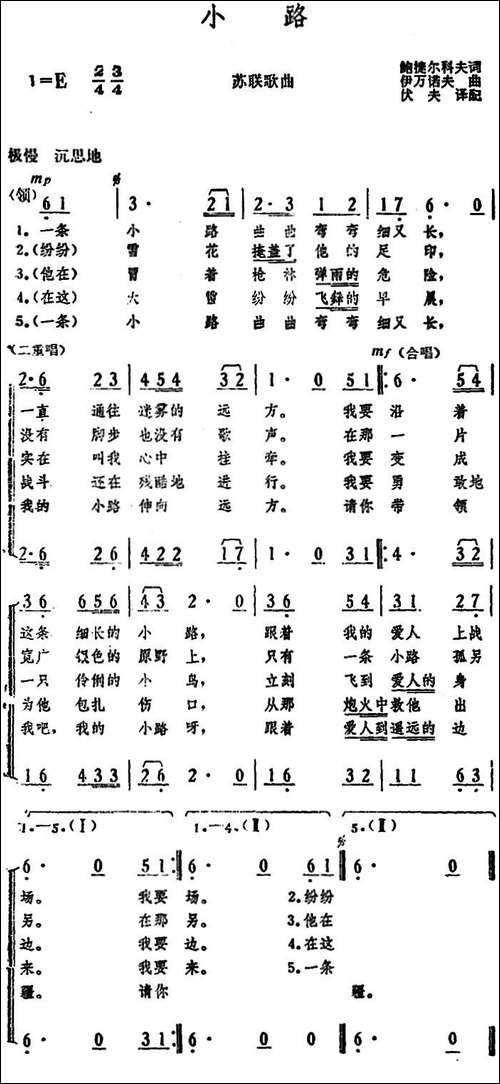 小路
鲍捷尔科夫词
1=E 2/4 3/4 苏联歌曲 伊万诺夫曲
伏夫译配
极慢 沉思地
mp
(领) 6 1 3· 2 1 2· 3 1 2 1 7 6· 0
1.一条 小 路 曲曲 弯弯 细又长,
2.(纷纷) 雪 花 掩盖了 他的 足印,
3.(他在) 冒 着 枪林 弹雨的 危险,
4.(在这) 大 雪 纷纷 飞舞的 早晨,
5.(一条) 小 路 曲曲 弯弯 细又长,
(二重唱) mf (合唱)
2· 6 2 3 4 5 4 3 2 1· 0 5 1 6· 5 4
一直 通往 迷雾的 远方。 我要 沿 着
没有 脚步 也没有 歌声。 在那 一 片
实在 叫我 心中 挂牵。 我要 变 成
战斗 还在 残酷地 进行。 我要 勇 敢地
我的 小路 伸向 远方。 请你 带 领
2· 6 2 6 4 2 2 1 7 1· 0 3 1 4· 3 2
3 6 6 5 6 4 3 2· 0 3 6 5 4 3 1 2 7
这条 细长的 小路, 跟着 我的 爱人 上战
宽广 银色的 原野上, 只有 一条 小路 孤另
一只 伶俐的 小鸟, 立刻 飞到 爱人的 身
为他 包扎 伤口, 从那 炮火中 救他 出
我吧, 我的 小路呀, 跟着 爱人 到遥远的 边
1 6 4 3 3 2 6 2· 0 1 6 3 2 1 1 6 3
1.—5.(Ⅰ) 1.—4.(Ⅱ) 5.(Ⅱ)
6· 0 5 1 6· 0 6 1 6· 0
场。 我要 场。 2.纷纷
另。 在那 另。 3.他在
边。 我要 边。 4.在这
来。 我要 来。 5.一条
疆。 请你 疆。
6· 0 3 1 6· 0 0 6· 0